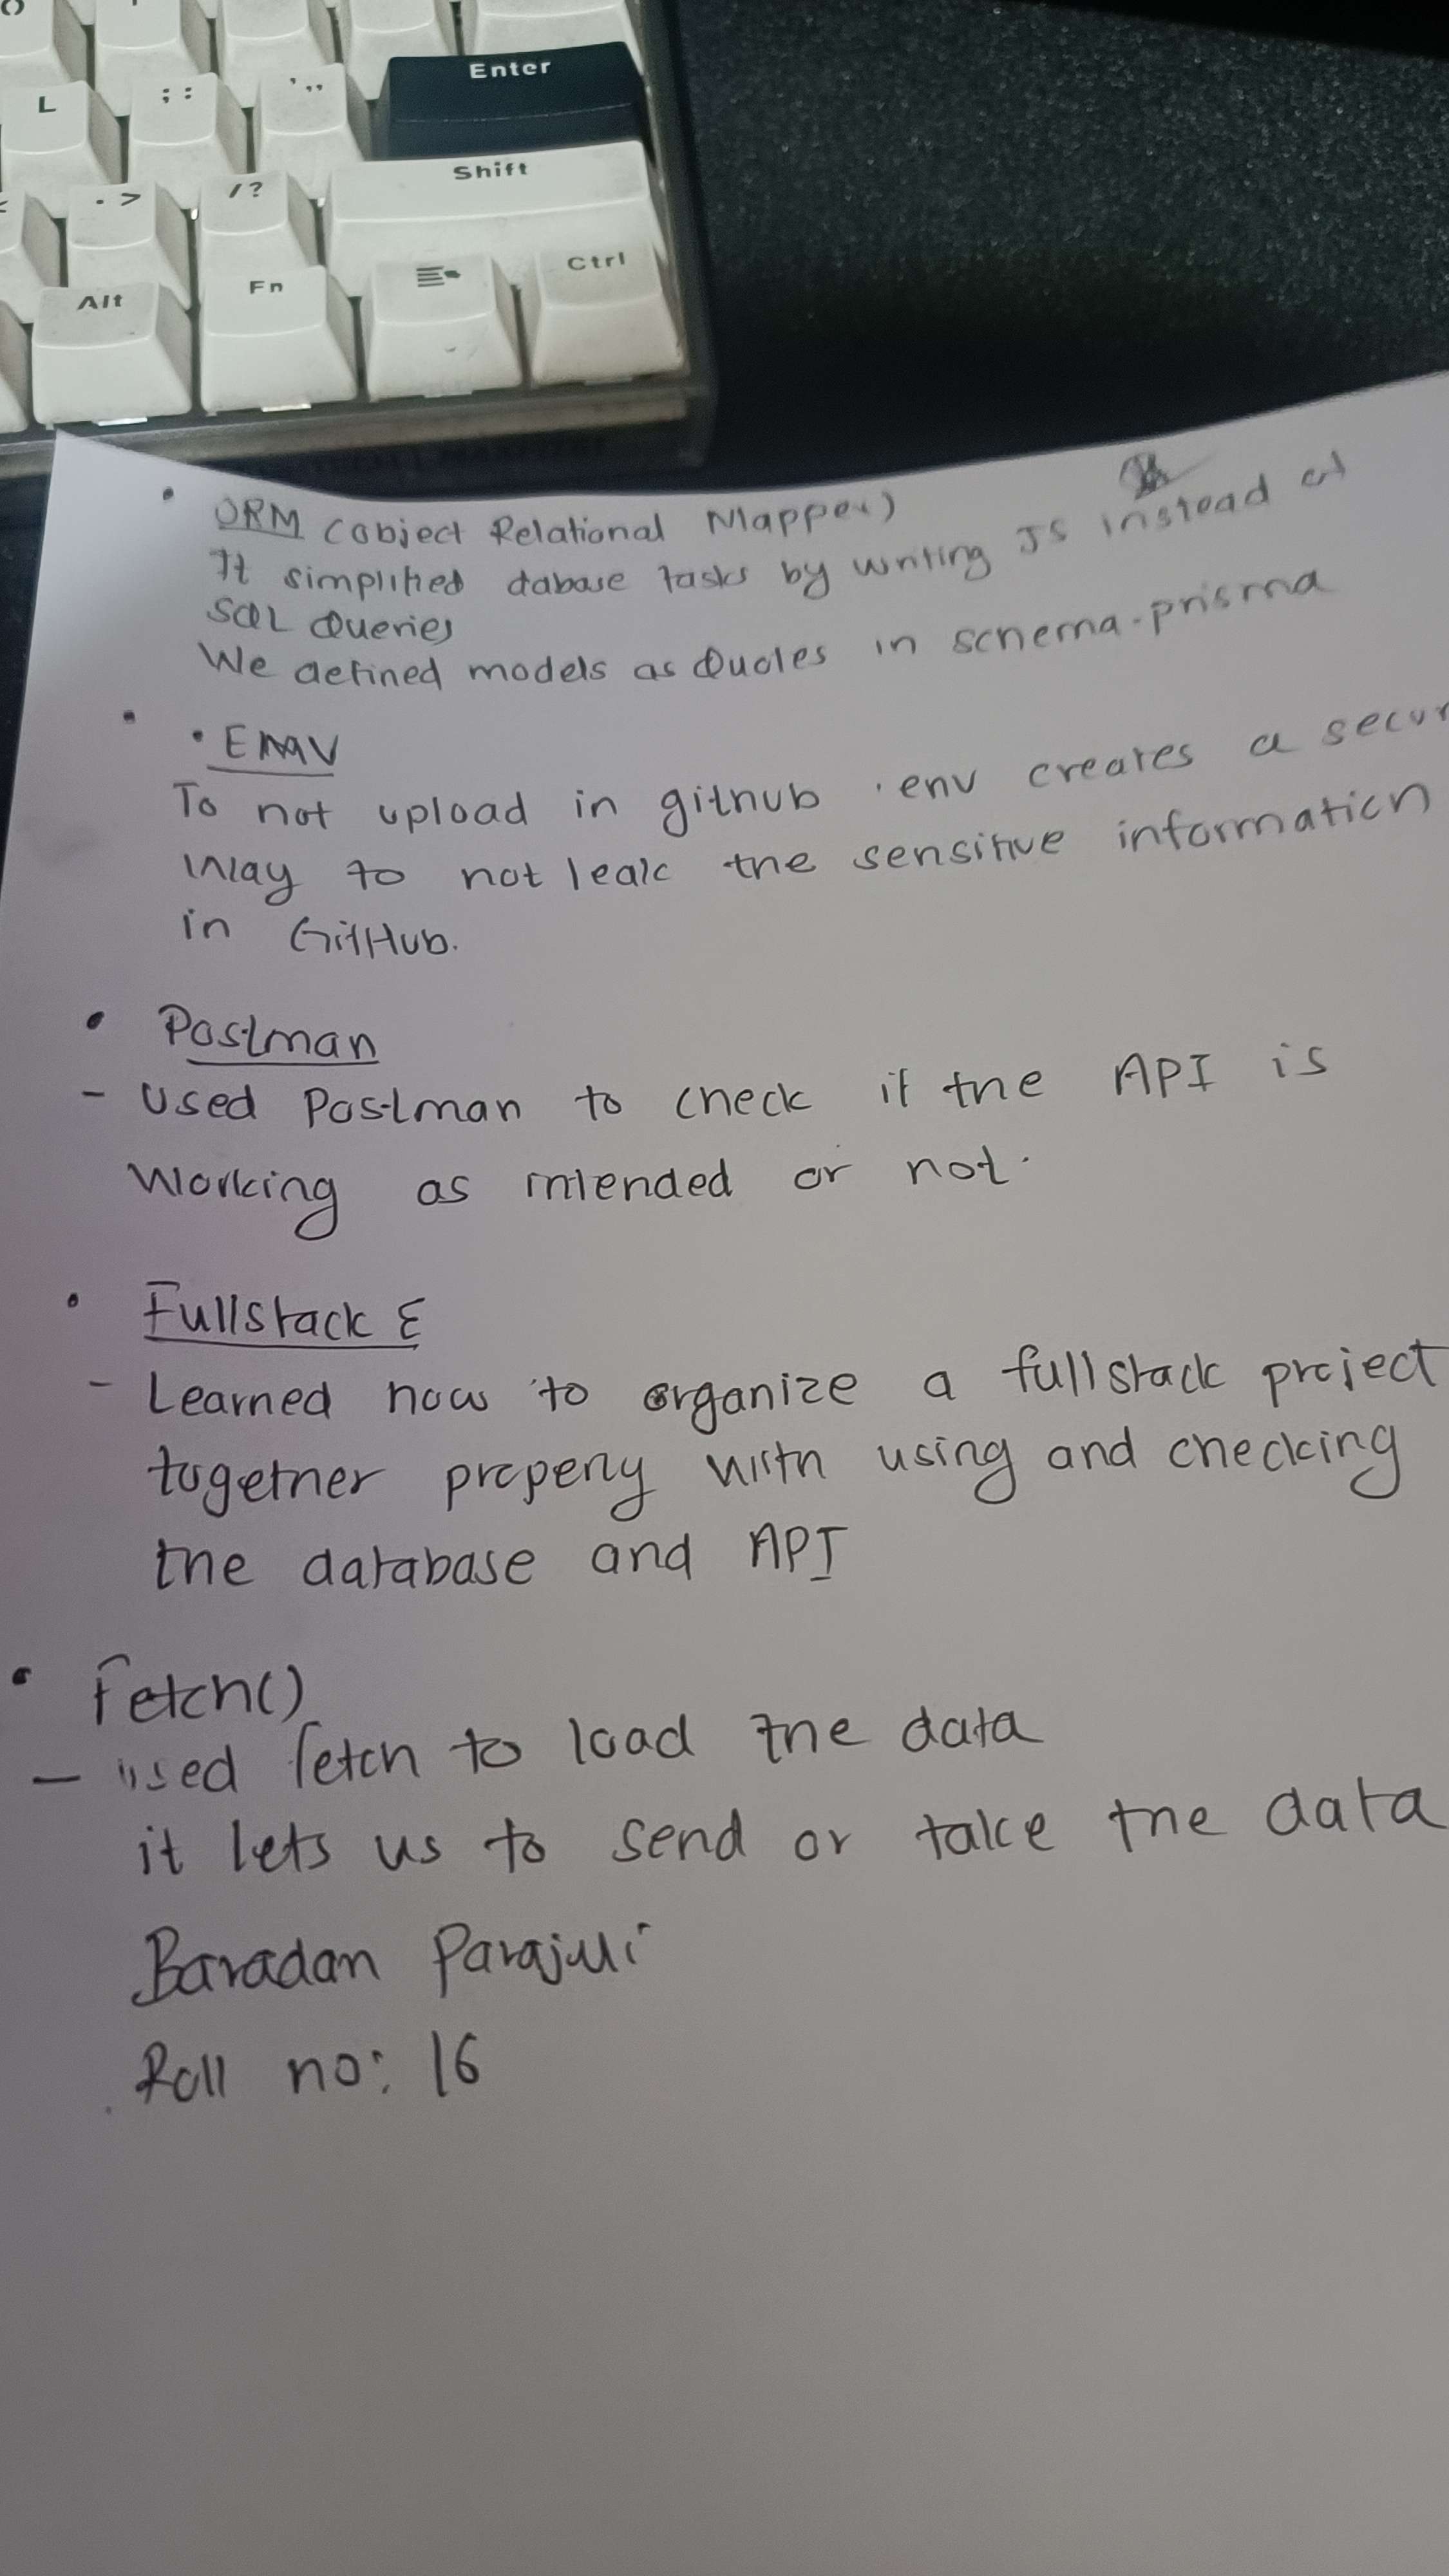 Enter
L
; :
' ,,
Shift
. >
/ ?
Alt
Fn
Ctrl
ORM (Object Relational Mapper)
It simplified dabase tasks by writing JS instead of
SQL Queries
We defined models as Quotes in schema.prisma
• ENV
To not upload in github .env creates a secur
way to not leak the sensitive information
in GitHub.
• Postman
- Used Postman to check if the API is
working as intended or not.
• Fullstack
- Learned how to organize a fullstack project
together properly with using and checking
the database and API
• Fetch()
- used fetch to load the data
it lets us to send or take the data
Baradan Parajuli
Roll no: 16